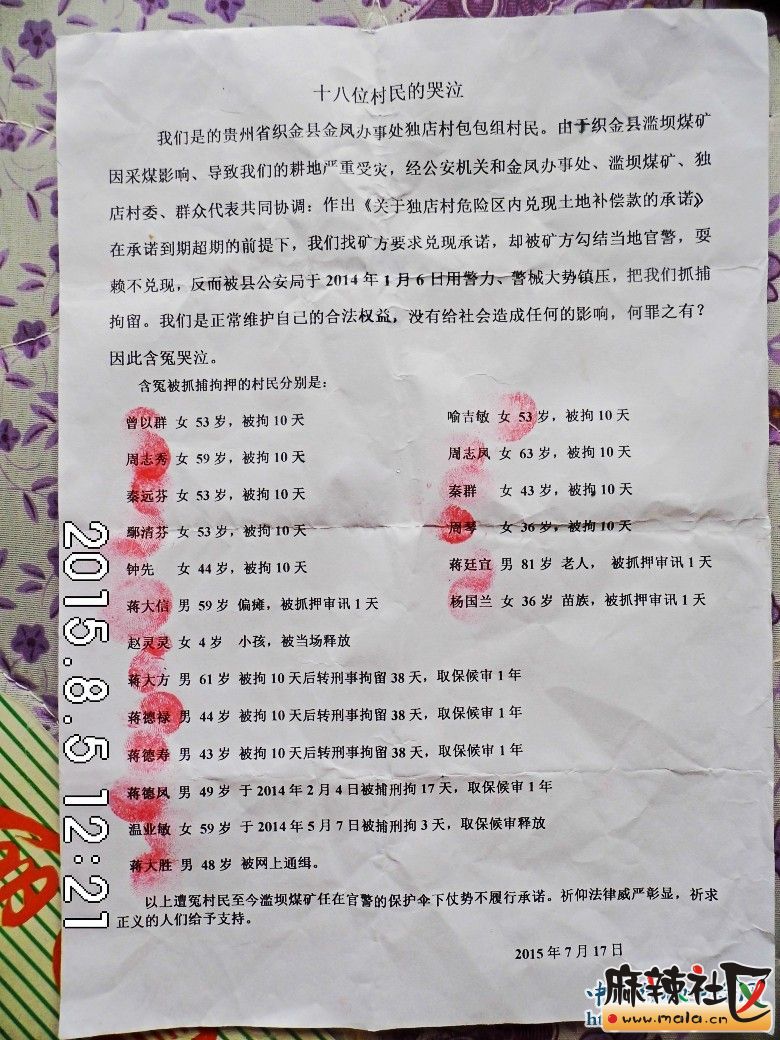 十八位村民的哭泣
我们是的贵州省织金县金凤办事处独店村包包组村民。由于织金县滥坝煤矿
因采煤影响、导致我们的耕地严重受灾，经公安机关和金凤办事处、滥坝煤矿、独
店村委、群众代表共同协调：作出《关于独店村危险区内兑现土地补偿款的承诺》
在承诺到期超期的前提下，我们找矿方要求兑现承诺，却被矿方勾结当地官警，耍
赖不兑现，反而被县公安局于 2014 年 1 月 6 日用警力、警械大势镇压，把我们抓捕
拘留。我们是正常维护自己的合法权益，没有给社会造成任何的影响，何罪之有？
因此含冤哭泣。
含冤被抓捕拘押的村民分别是：
曾以群 女 53 岁，被拘 10 天
喻吉敏 女 53 岁，被拘 10 天
周志秀 女 59 岁，被拘 10 天
周志凤 女 63 岁，被拘 10 天
秦远芬 女 53 岁，被拘 10 天
秦群 女 43 岁，被拘 10 天
鄢清芬 女 53 岁，被拘 10 天
周琴 女 36 岁，被拘 10 天
钟先 女 44 岁，被拘 10 天
蒋廷宣 男 81 岁 老人， 被抓押审讯 1 天
蒋大信 男 59 岁 偏瘫，被抓押审讯 1 天
杨国兰 女 36 岁 苗族，被抓押审讯 1 天
赵灵灵 女 4 岁 小孩，被当场释放
蒋大方 男 61 岁 被拘 10 天后转刑事拘留 38 天，取保候审 1 年
蒋德禄 男 44 岁 被拘 10 天后转刑事拘留 38 天，取保候审 1 年
蒋德寿 男 43 岁 被拘 10 天后转刑事拘留 38 天，取保候审 1 年
蒋德凤 男 49 岁 于 2014 年 2 月 4 日被捕刑拘 17 天，取保候审 1 年
温业敏 女 59 岁 于 2014 年 5 月 7 日被捕刑拘 3 天，取保候审释放
蒋大胜 男 48 岁 被网上通缉。
以上遭冤村民至今滥坝煤矿任在官警的保护伞下仗势不履行承诺。祈仰法律威严彰显，祈求
正义的人们给予支持。
2015 年 7 月 17 日
2015.8.5 12:21
麻辣社区
www.mala.cn